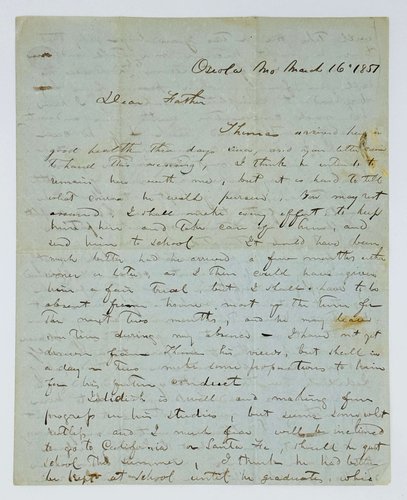 Osceola Mo. March 16th 1851
Dear Father
Thomas arrived here in
good health three days since, and your letter came
to hand this evening, I think he intends to
remain here with me, but it is hard to tell
what course he will pursue. You may rest
assured I shall make every effort to keep
him here and take care of him, and
send him to school It would have been
much better had he arrived a few months either
sooner or later, as I then could have given
him a fair trial, but I shall have to be
absent from home most of the time for
the next two months, and he may leave
during my absence - I have not yet
drawn from Thomas his needs, but shall in
a day or two make some propositions to him
for his future conduct
is well and making fine
progress in his studies, but seems somewhat
restless and I much fear will be inclined
to go to California or Santa Fe, should he quit
school this summer, I think he had better
be kept at school until he graduates, which